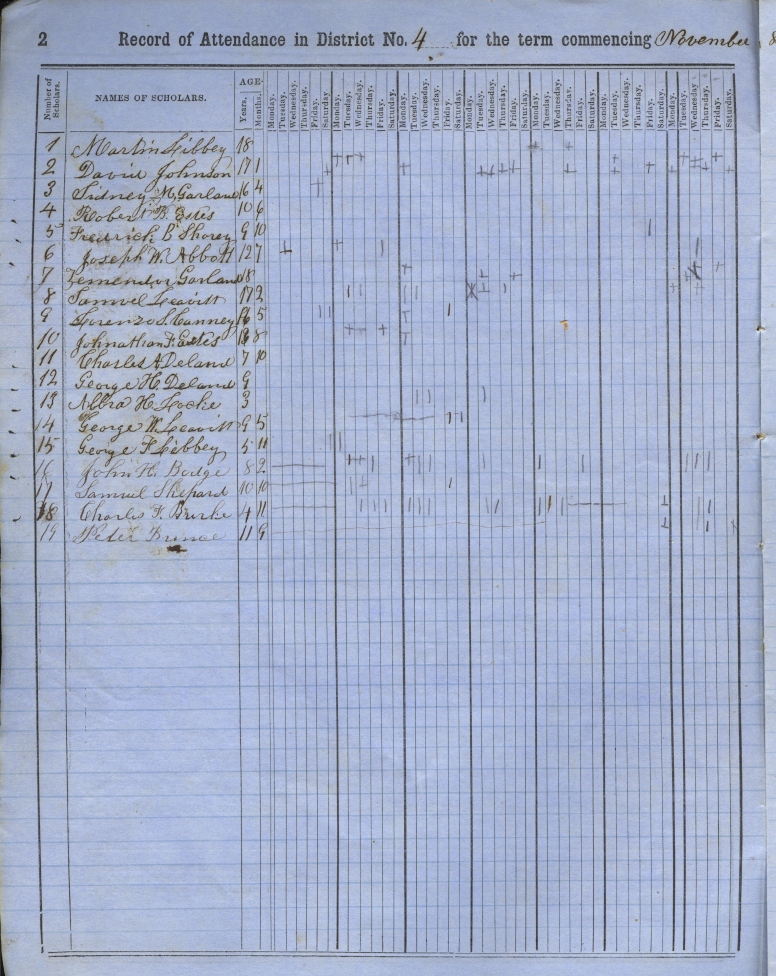 2 Record of Attendance in District No. 4 for the term commencing November 8
Number of Scholars. NAMES OF SCHOLARS. AGE
Years. Months. Monday. Tuesday. Wednesday. Thursday. Friday. Saturday Monday. Tuesday. Wednesday. Thursday. Friday. Saturday. Monday. Tuesday. Wednesday. Thursday. Friday. Saturday. Monday. Tuesday. Wednesday. Thursday. Friday. Saturday. Monday. Tuesday. Wednesday. Thursday. Friday. Saturday. Monday. Tuesday. Wednesday. Thursday. Friday. Saturday. Monday. Tuesday. Wednesday Thursday. Friday. Saturday.
1 Martin Libbey 18
2 David Johnson 17 1
3 Sidney M Garland 16 4
4 Robert R Estes 10 6
5 Fredrick B Shorey 9 10
6 Joseph W. Abbott 12 7
7 Garland 18
8 Samuel Leavitt 17 2
9 Lorenzo S. Canney 5
10 Johnathan F. Estes 8
11 Charles A Deland 7 10
12 George H. Deland 9
13 Albra H Locke 3
14 George W. Leavitt 9 5
15 George F Libbey 5 11
16 John H. Bodge 8 2
17 Samuel Shepard 10 10
18 Charles F. Burke 4 11
19 Peter 11 9